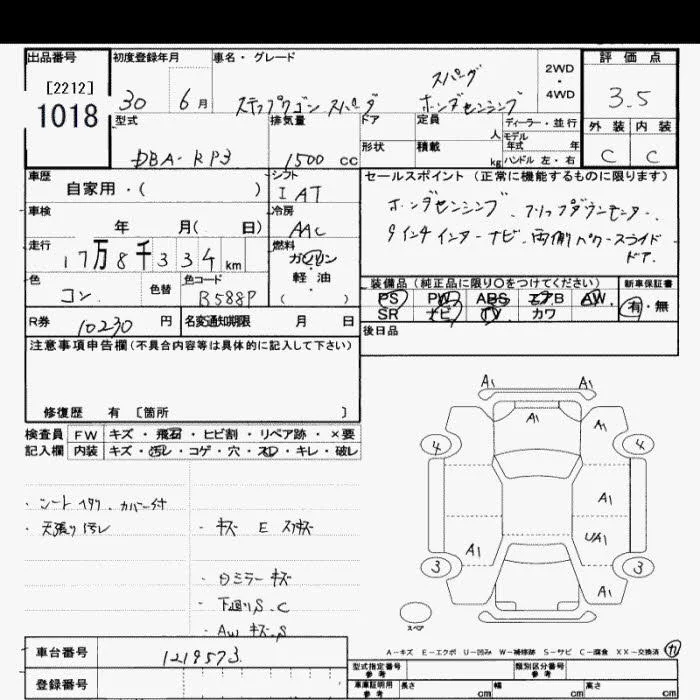 出品番号 初度登録年月 車名・グレード 評価点
[2212]
1018
30 6月 ステップワゴン スパーダ スパーダ ホンダセンシング 2WD・4WD 3.5
型式 排気量 ドア 定員 人 ディーラー・並行 外装 内装
モデル年式 年
DBA-RP3 1500cc 形状 積載 kg ハンドル 左・右 C C
車歴 シフト セールスポイント (正常に機能するものに限ります)
自家用・( ) IAT
ホンダセンシング
車検 冷房
年 月( 日) AAC
9インチインターナビ 両側パワースライドドア.
走行 燃料
17万8千334km ガソリン
軽・油
( )
色 色替 色コード 装備品 (純正品に限り○をつけてください) 新車保証書
コン B588P PS PW ABS エアB AW 有・無
SR ナビ TV カワ
R券 10230円 名変通知期限 月 日 後日品
注意事項申告欄(不具合内容等は具体的に記入して下さい)
修復歴 有 [箇所 ]
検査員 FW キズ・飛石・ヒビ割・リペア跡・×要
記入欄 内装 キズ・汚レ・コゲ・穴・スレ・キレ・破レ
A1 A1
A1 A1
4 4
A1
A1 UA1
3 3
A1
・カバー付
・天張り汚レ ・キズ E スリキズ
・日ミラーキズ
・下廻りS.C
・AWキズ.S
スペア
A-キズ E-エクボ U-凹み W-補修跡 S-サビ C-腐食 XX-交換済
車台番号 1219573
型式指定番号 参考 類別区分番号 参考
登録番号
車庫証明用 参考 長さ cm 幅 cm 高さ cm